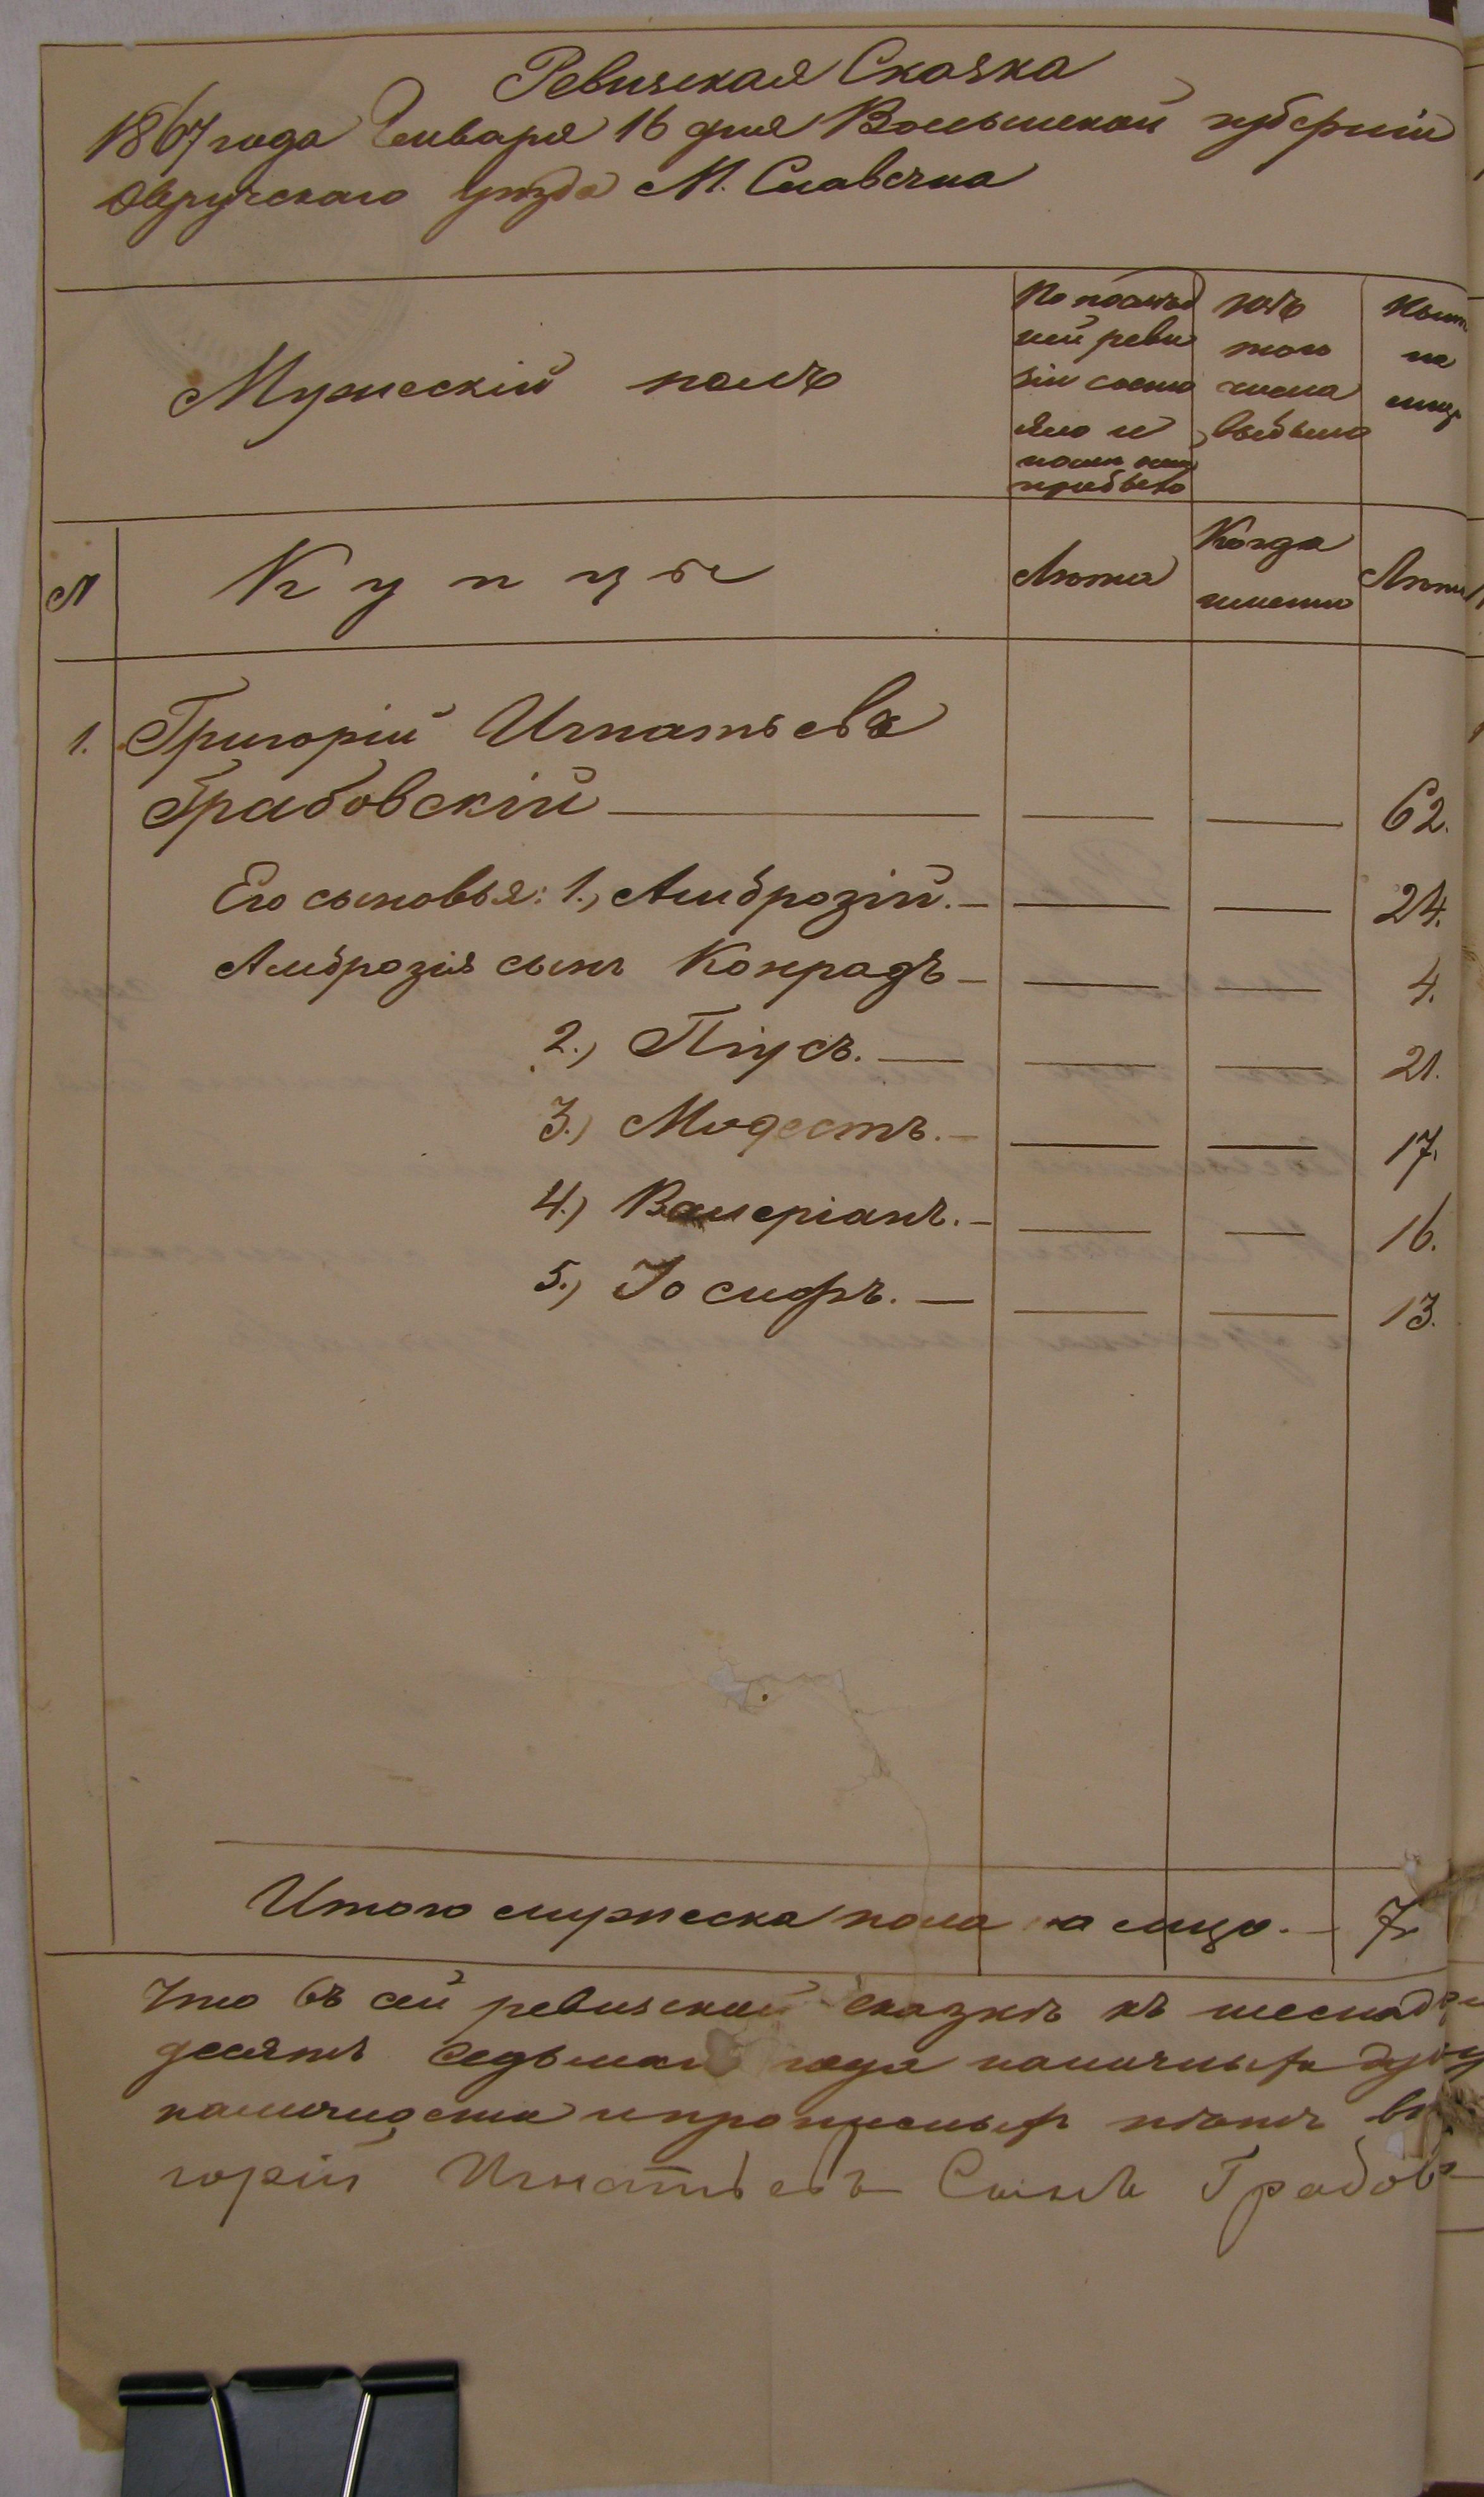 Ревизская Сказка
1867 года Генваря 16 дня Волынской губерніи
Овручскаго уѣзда М. Словечна
Мужескій полъ
По послѣд
ней реви
зіи состо
яло и
послѣ оной
прибыло
Изъ
того
числа
выбыло
Нын
на
лиц
№
Купцы
Лѣта
Когда
именно
Лѣта
1. Григорій Игнатьевъ
Грабовскій 62.
Его сыновья: 1., Амброзій. 24.
Амброзія сынъ Конрадъ 4.
2., Піусъ. 21.
3.) Модестъ. 17.
4.) Валеріанъ. 16.
5., Іосифъ. 13.
Итого мужеска пола на лицо. 7.
Что въ сей ревизской сказкѣ къ
десятъ седьмаго года наличныхъ душ
и прописныхъ нѣтъ
горій Игнатьевъ Сынъ Грабов